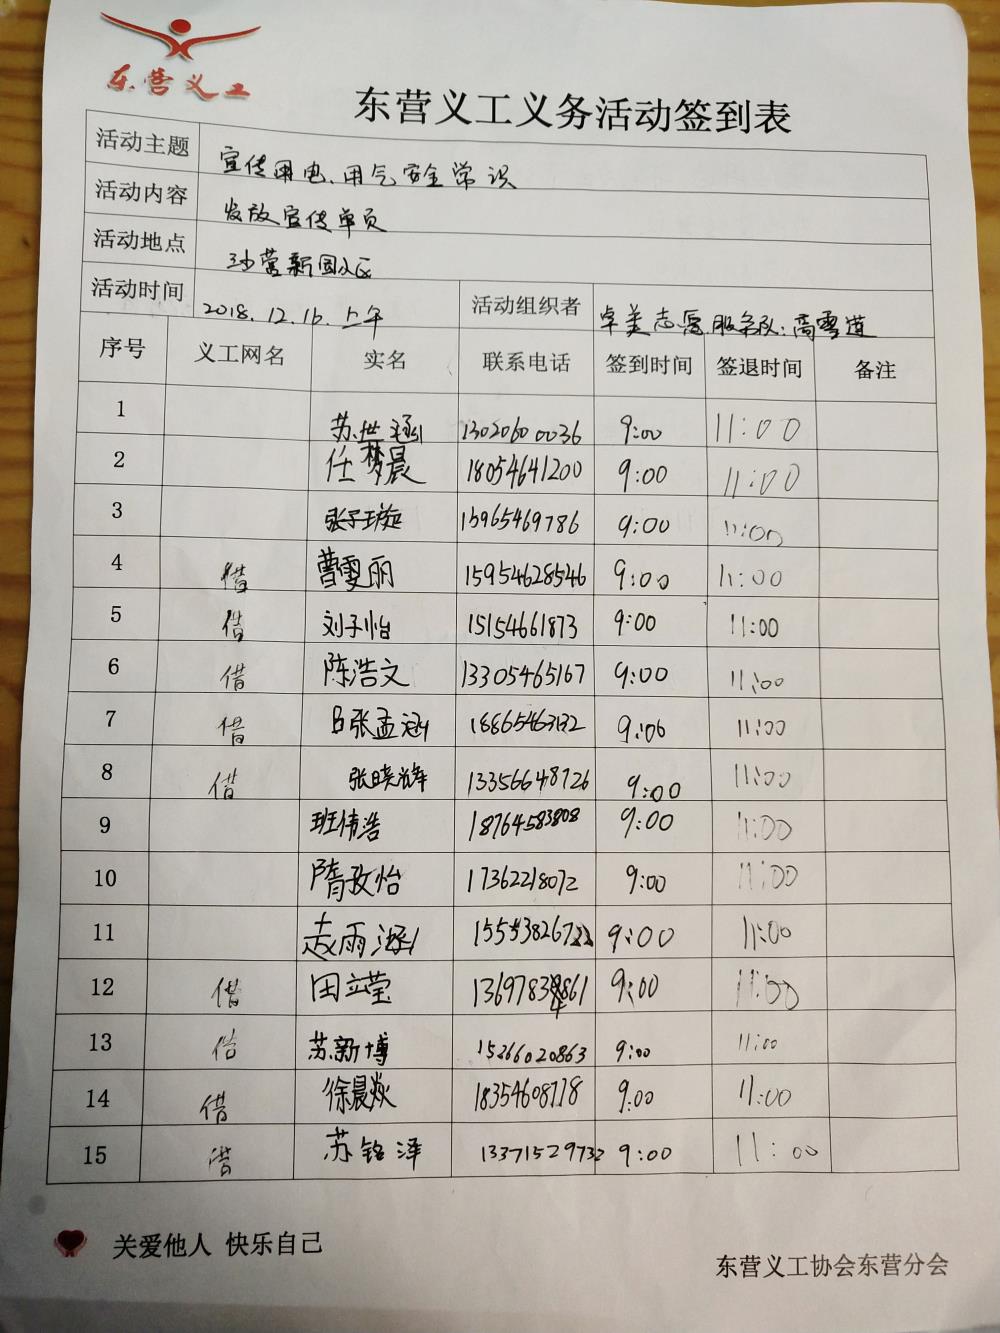 东营义工
东营义工义务活动签到表
活动主题 宣传用电、用气安全常识
活动内容 发放宣传单页
活动地点 沙营新园小区
活动时间 2018.12.16.上午 活动组织者 卓美志愿服务队:高雪莲
序号 义工网名 实名 联系电话 签到时间 签退时间 备注
1 苏世涵 13020600036 9:00 11:00
2 任梦晨 18054641200 9:00 11:00
3 张子璇 15965469786 9:00 11:00
4 借 曹雯丽 15954628546 9:00 11:00
5 借 刘子怡 15154661873 9:00 11:00
6 借 陈浩文 13305465167 9:00 11:00
7 借 张孟涵 18865463132 9:00 11:00
8 借 张晓峰 13356648726 9:00 11:00
9 班倩浩 18764583808 9:00 11:00
10 隋孜怡 17362218072 9:00 11:00
11 赵雨涵 9:00 11:00
12 借 田立莹 9:00 11:00
13 借 苏新博 15266020863 9:00 11:00
14 借 徐晨焱 18354608778 9:00 11:00
15 借 苏铭泽 13371529732 9:00 11:00
关爱他人 快乐自己
东营义工协会东营分会